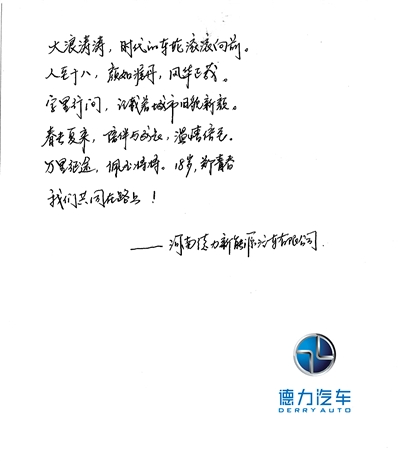 大浪涛涛，时代的车轮滚滚向前。
人至十八，颜如渥丹，风华正茂。
字里行间，记载着城市旧貌新颜。
春去夏来，陪伴与成长，温情倍至。
万里征途，佩玉将将。18岁，郑青春
我们共同在路上！
——河南德力新能源汽车有限公司.
德力汽车
DERRY AUTO